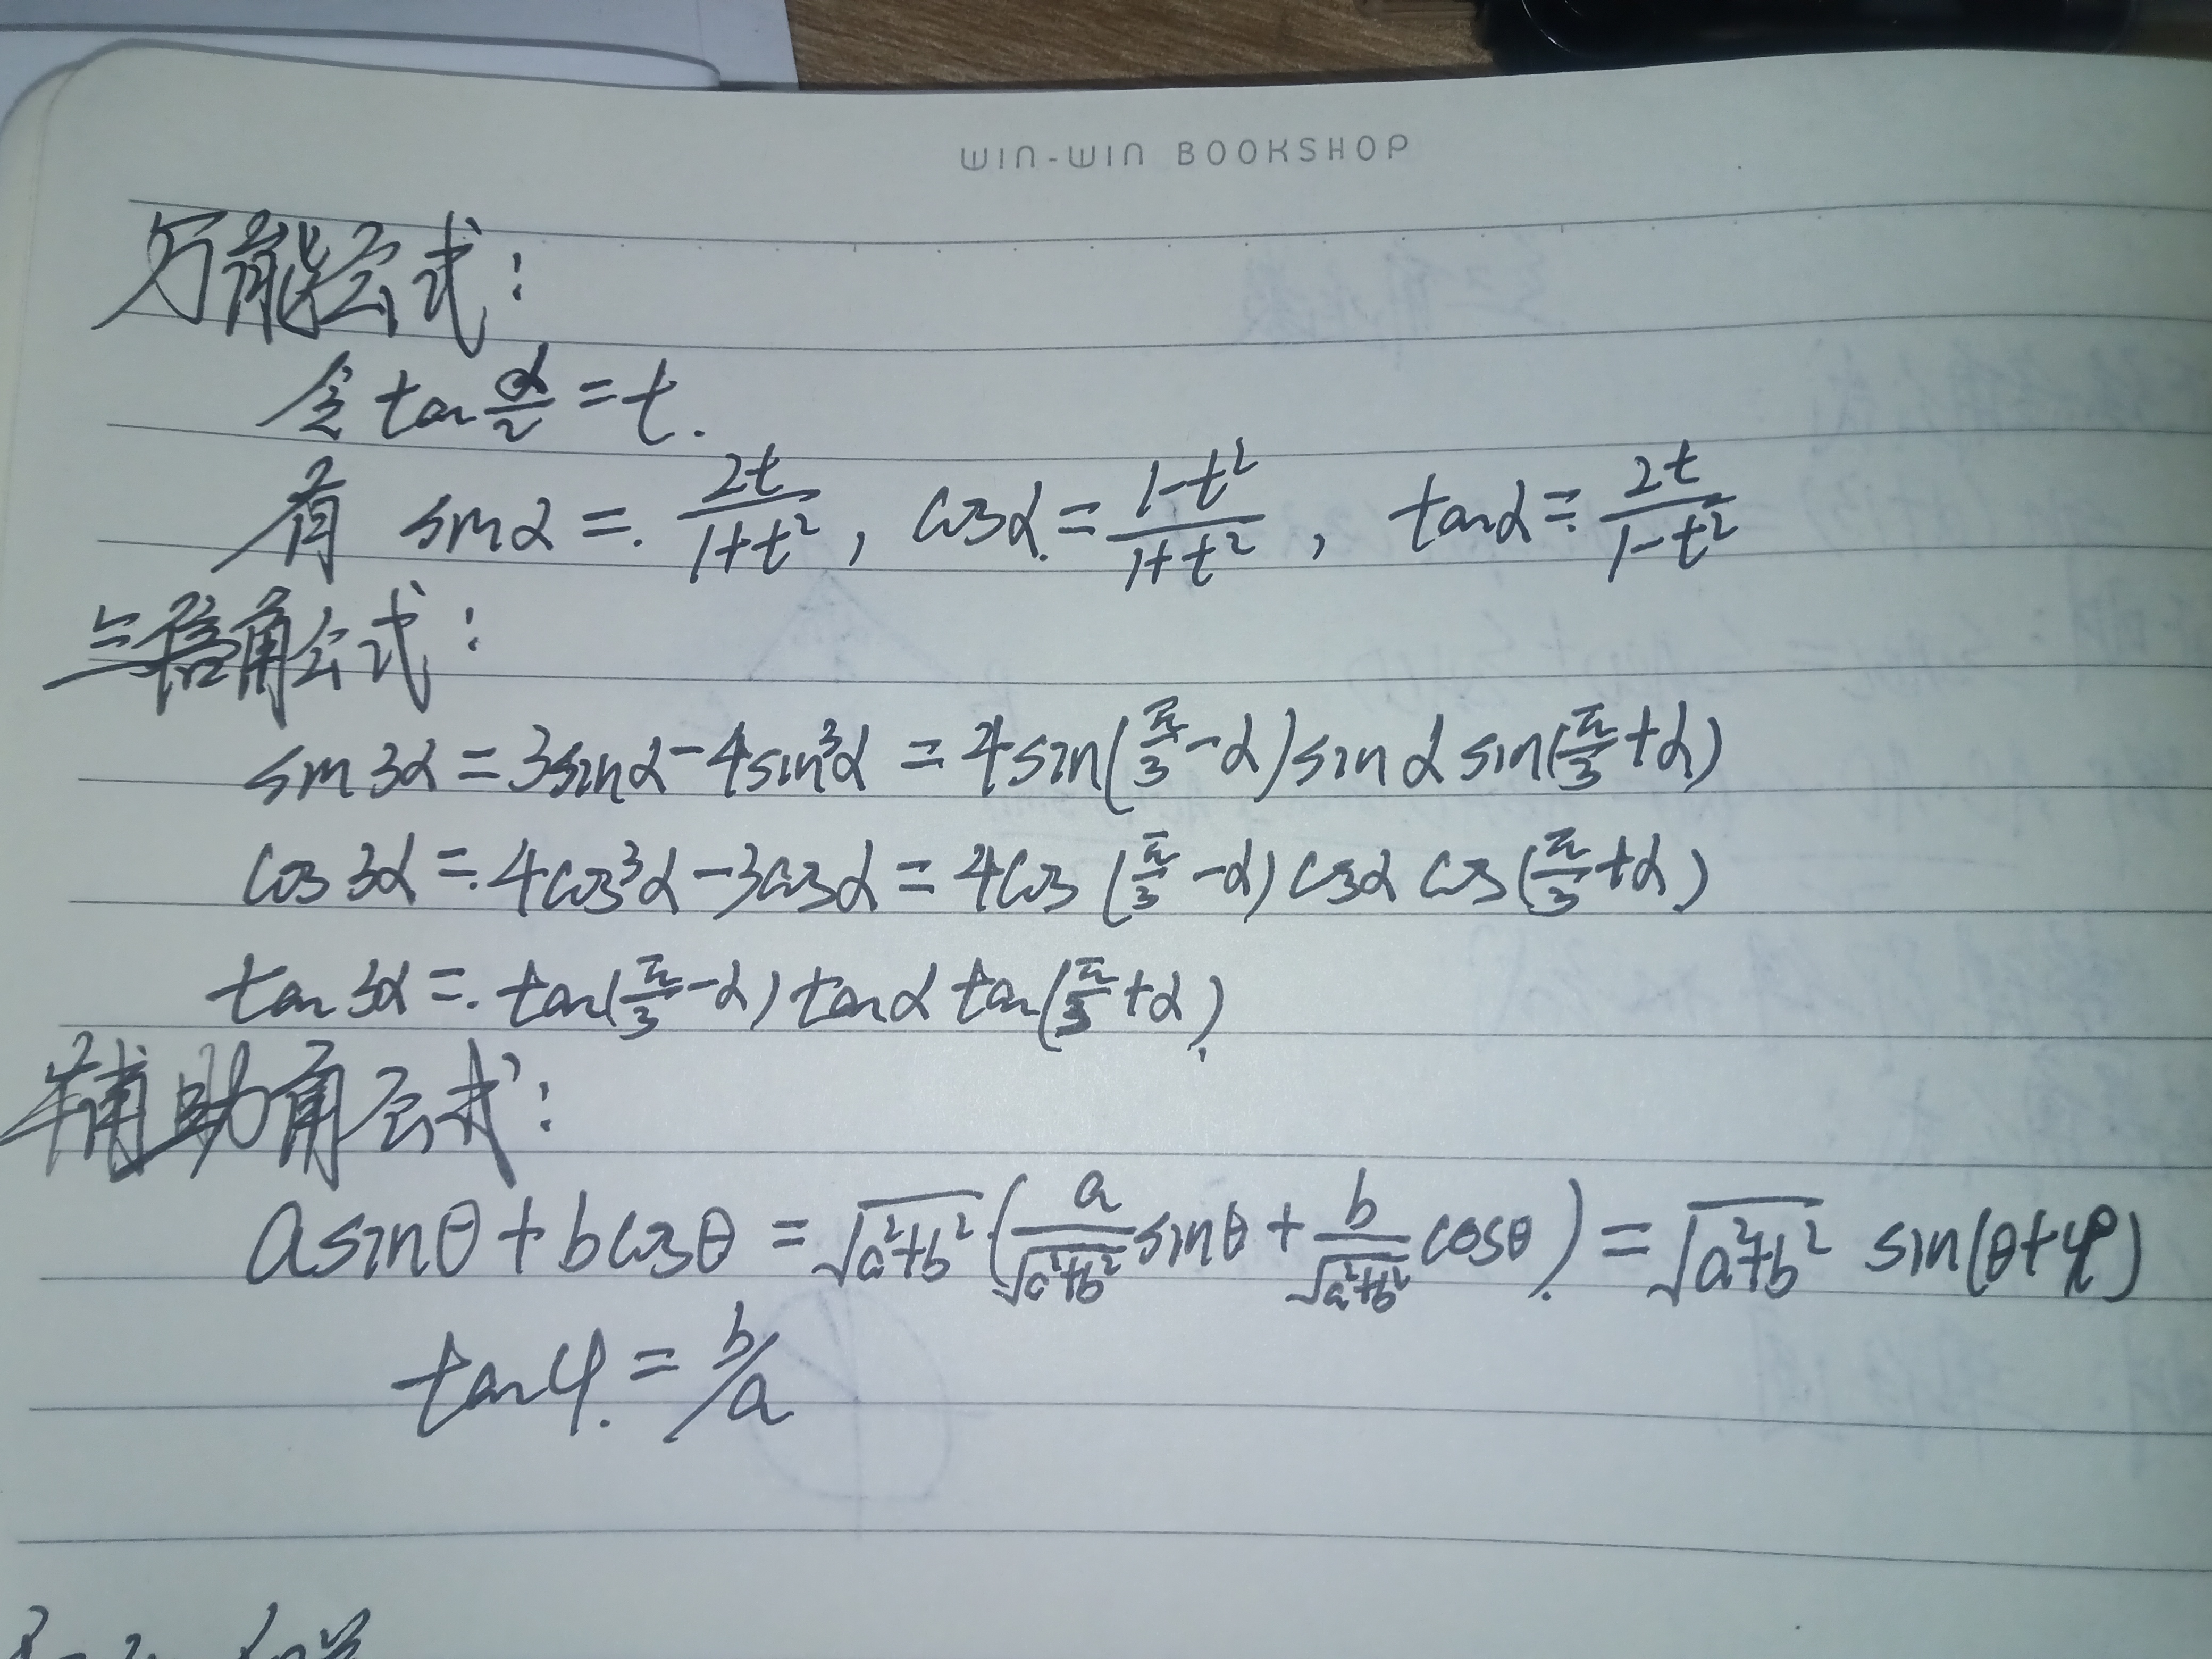 WIN-WIN BOOKSHOP
万能公式：
令 tan α/2 = t.
有 sinα = 2t/(1+t²), cosα = (1-t²)/(1+t²), tanα = 2t/(1-t²)
三倍角公式：
sin3α = 3sinα - 4sin³α = 4sin(π/3 - α) sinα sin(π/3 + α)
cos3α = 4cos³α - 3cosα = 4cos(π/3 - α) cosα cos(π/3 + α)
tan3α = tan(π/3 - α) tanα tan(π/3 + α)
辅助角公式：
asinθ + bcosθ = √(a²+b²) (a/√(a²+b²) sinθ + b/√(a²+b²) cosθ) = √(a²+b²) sin(θ+φ)
tanφ = b/a